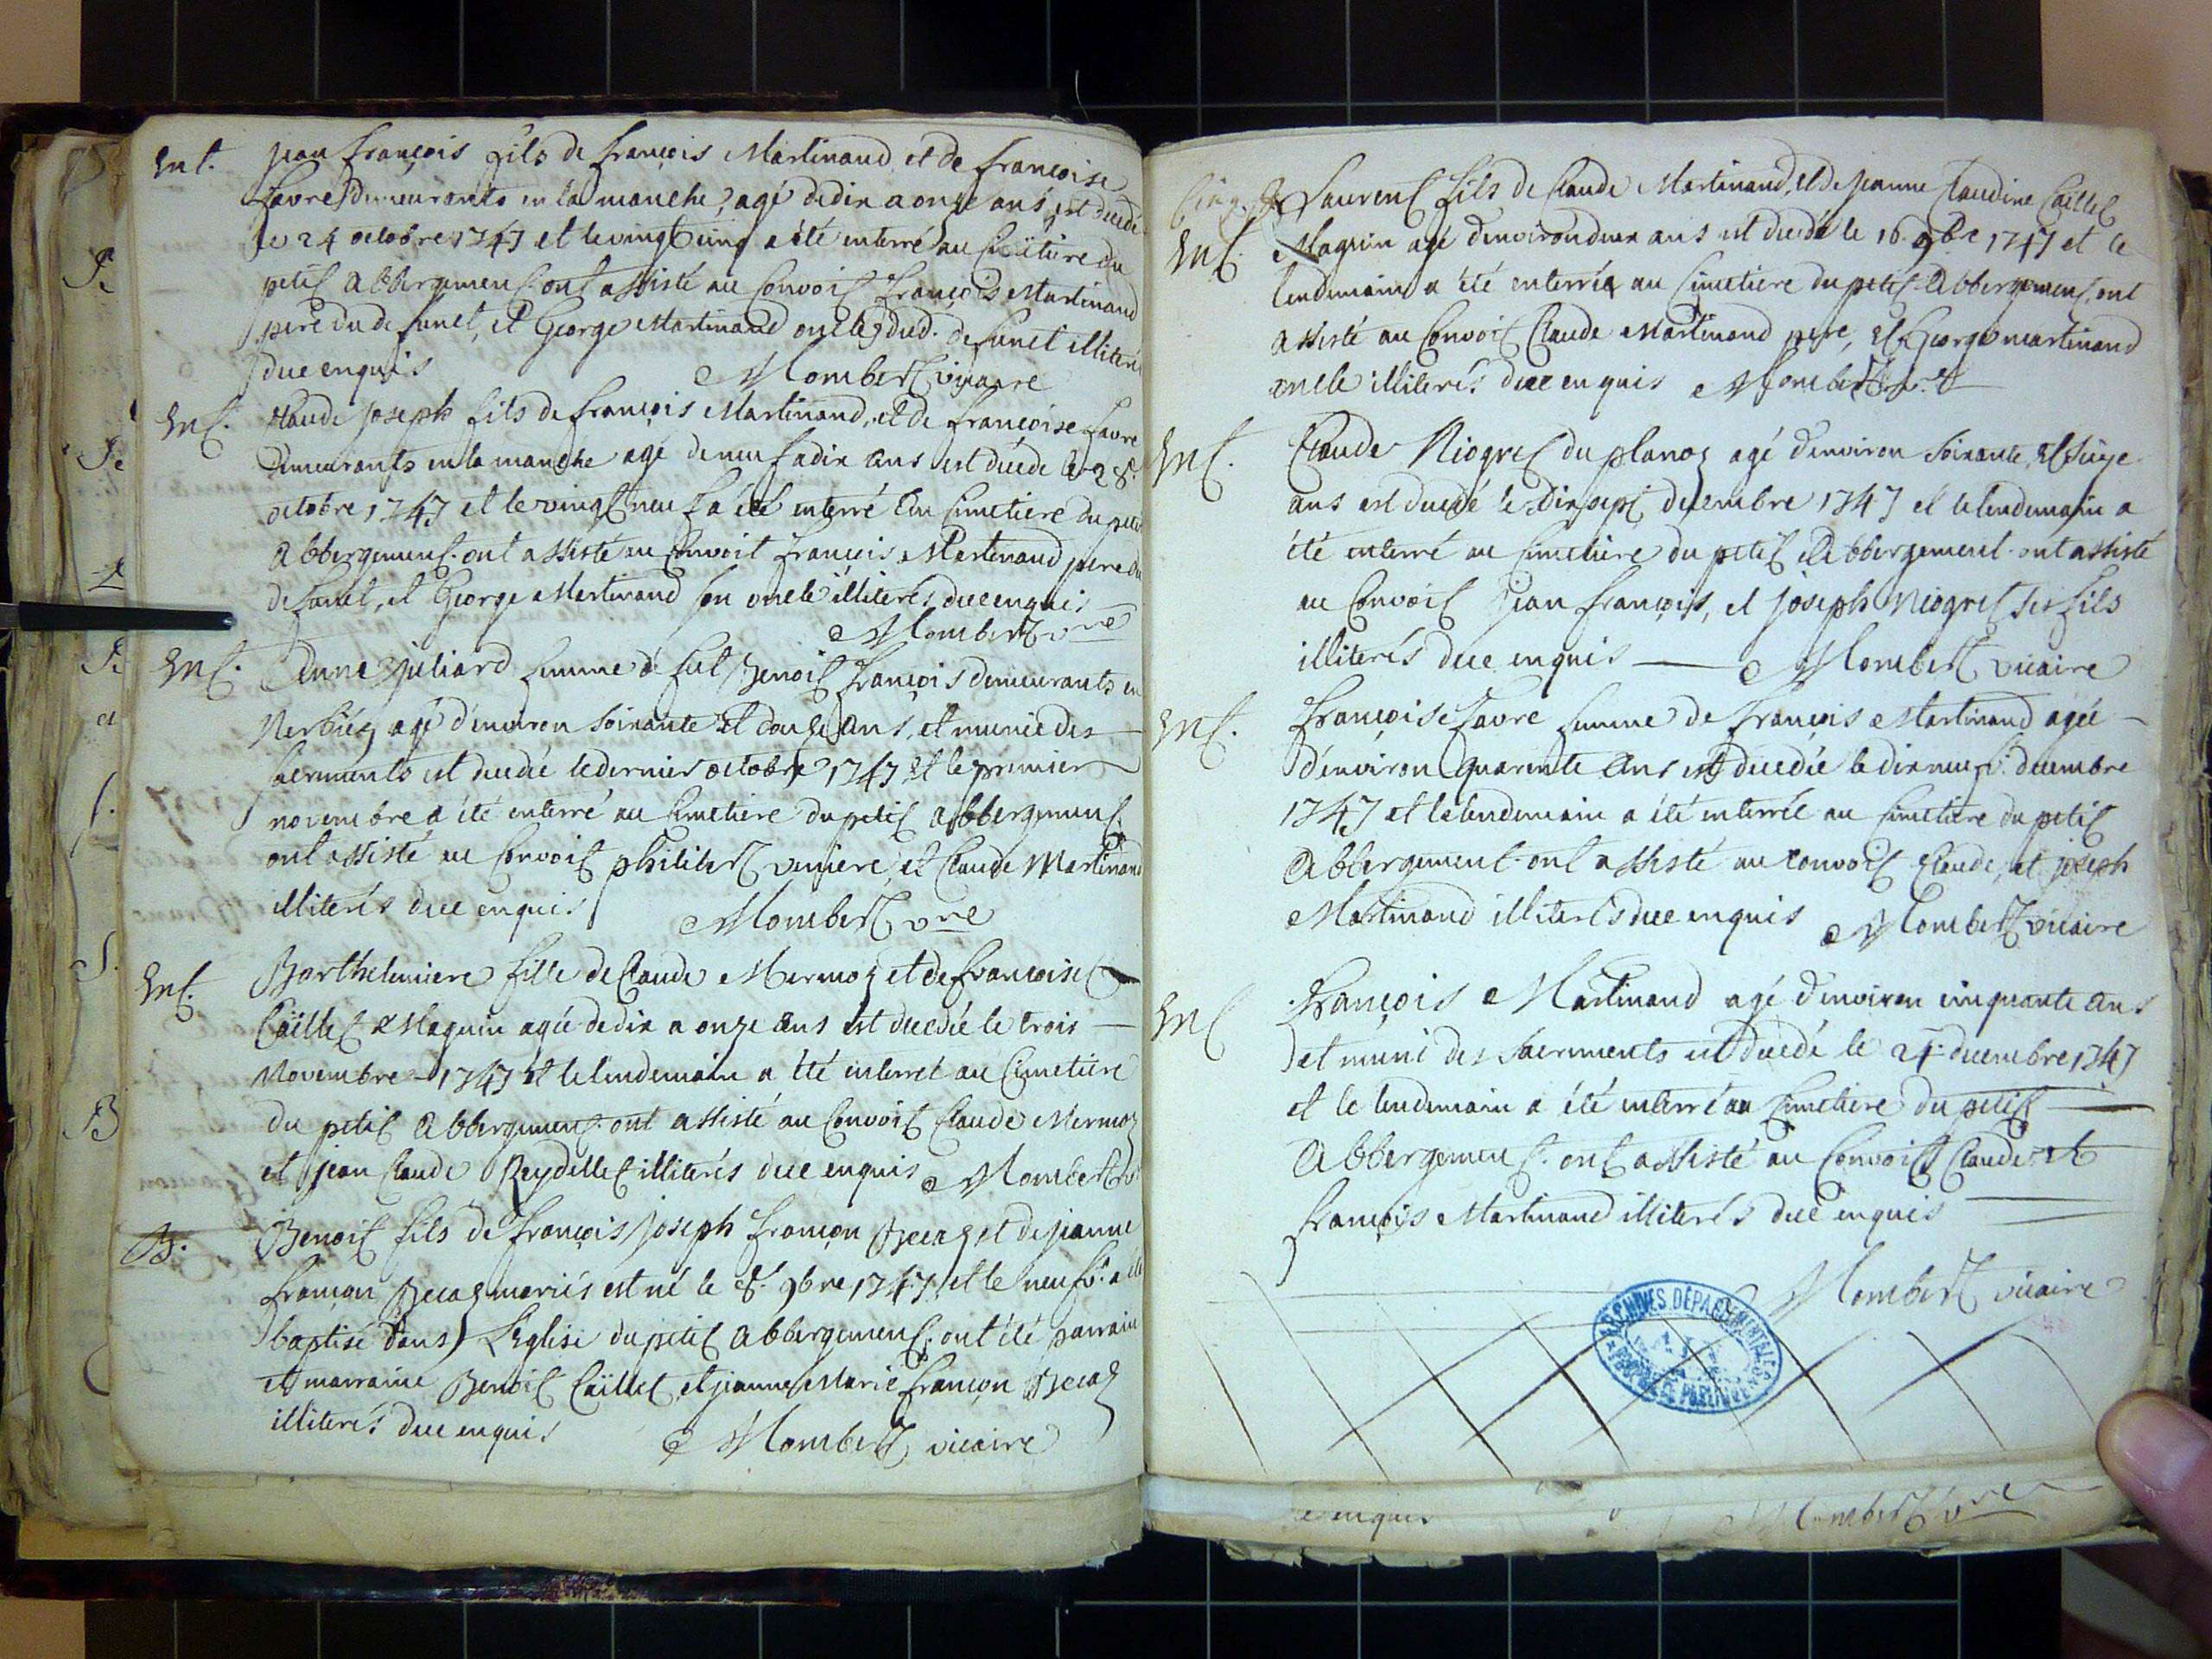 Ent. jean françois fils de françois Martinand et de françoise
favre demeurants en la manche, agé de dix a onze ans, est decedé
le 24 octobre 1747 et le vingt cinq a été enterré au Cimetiere du
petit abbergement ont assisté au Convoit françois Martinand
pere du defunct, et George Martinand oncle dud. defunct illiterés
dece enquis Mombert vicaire
Ent. Claude joseph fils de françois Martinand, et de françoise favre
demeurants en la manche agé de neuf a dix ans est decedé le 28.
octobre 1747 et le vingt neuf a été enterré au Cimetiere du petit
abbergement. ont assisté au Convoit françois Martinand pere du
defunct, et George Martinand son oncle illiterés dece enquis
Mombert vre
Ent. juliard femme a fut Benoit françois demeurants en
agé d'environ soixante et douze ans, et munie des
sacrements est decedée le dernier octobre 1747 et le premier
novembre a été enterré au Cimetiere du petit abbergement.
ont assisté au Convoit philibert et Claude Martinand
illiterés dece enquis Mombert vre
Ent. Barthelemiere fille de Claude Mermoz et de françoise
Caillet Maguin agée de dix a onze ans est decedée le trois
Novembre 1747 et le lendemain a été enterrée au Cimetiere
du petit Abbergement. ont assisté au Convoit Claude Mermoz
et jean Claude Reydellet illiterés dece enquis Mombert
B. Benoit fils de françois joseph françon Becaz et de jeanne
françon Becaz mariés est né le 8. 9bre 1747 et le neuf. a été
baptisé dans L'eglise du petit abbergement. ont été parrain
et marraine Benoit Caillet, et jeanne Marie françon Becaz
illiterés dece enquis Mombert vicaire
Laurent fils de Claude Martinand, et de jeanne Claudine Caillet
Ent. Maguin agé d'environ deux ans est decedé le 16. 9bre 1747 et le
lendemain a été enterré au Cimetiere du petit Abbergement, ont
assisté au Convoit Claude Martinand pere, et George martinand
oncle illiterés dece enquis Mombert
Ent. Claude Niogret du planoz agé d'environ soixante et seize
ans est decedé le dix sept decembre 1747 et le lendemain a
été enterré au Cimetiere du petit Abbergement. ont assisté
au Convoit jean françois, et joseph Niogret ses fils
illiterés dece enquis Mombert vicaire
Ent. françoise favre femme de françois Martinand agée
d'environ quarente ans est decedée le dix neuf. decembre
1747 et le lendemain a été enterrée au Cimetiere du petit
Abbergement. ont assisté au convoit Claude, et joseph
Martinand illiterés dece enquis Mombert vicaire
Ent françois Martinand agé d'environ cinquante ans
et muni des sacrements est decedé le decembre 1747
et le lendemain a été enterré au Cimetiere du petit
Abbergement. ont assisté au Convoit Claude et
françois Martinand illiterés dece enquis
Mombert vicaire
ARCHIVES DÉPARTEMENTALES
enquis Mombert vre